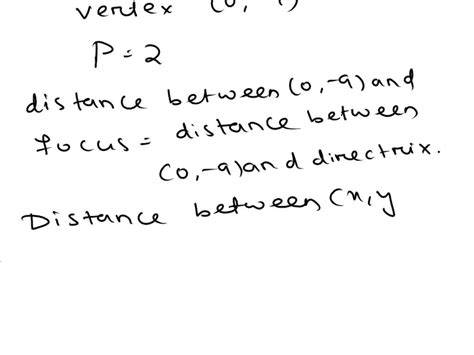 vertex (0,
P = 2
distance between (0, -9) and
focus = distance between
(0, -9) and directrix.
Distance between (x, y